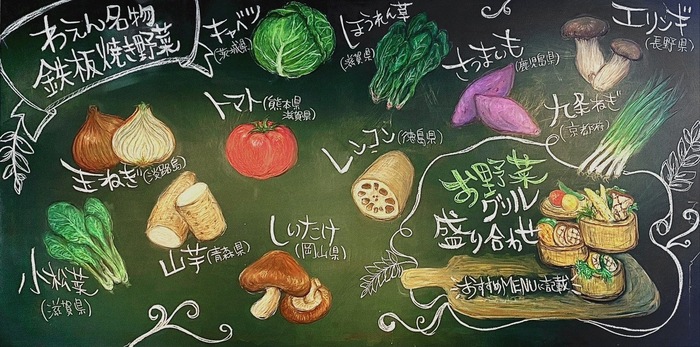 わえん名物
鉄板焼き野菜
キャベツ
(茨城県)
ほうれん草
(滋賀県)
さつまいも
(鹿児島県)
エリンギ
(長野県)
玉ねぎ(淡路島)
トマト(熊本県
滋賀県)
レンコン(徳島県)
九条ねぎ
(京都府)
小松菜
(滋賀県)
山芋(青森県)
しいたけ
(岡山県)
お野菜
グリル
盛り合わせ
おすすめMENUに記載